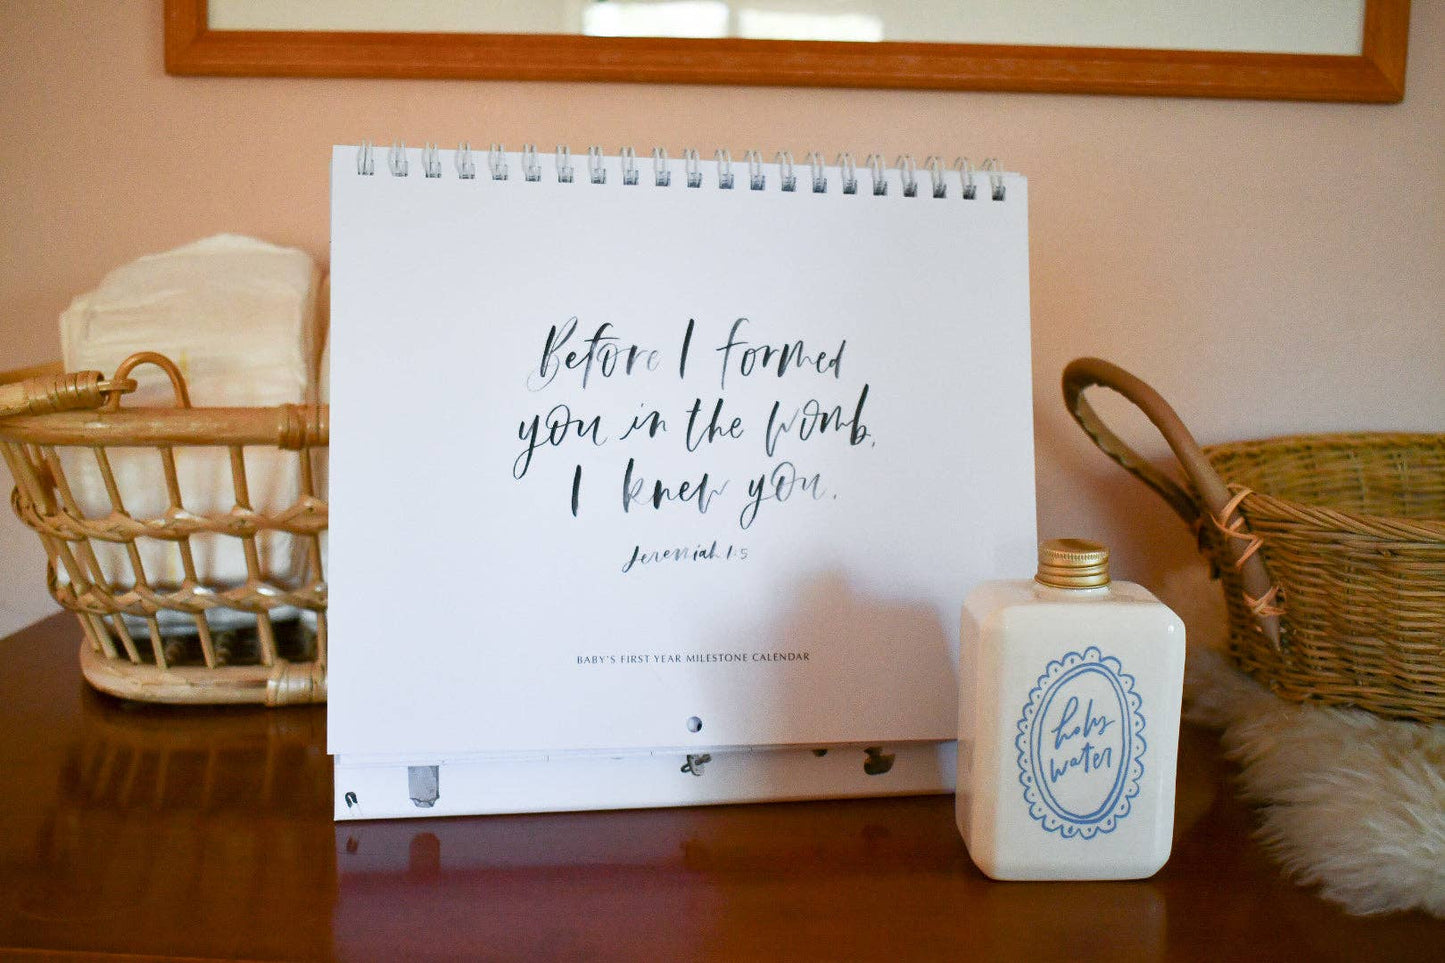 Before I formed
you in the womb,
I knew you.
Jeremiah 1:5
BABY'S FIRST YEAR MILESTONE CALENDAR
holy
water